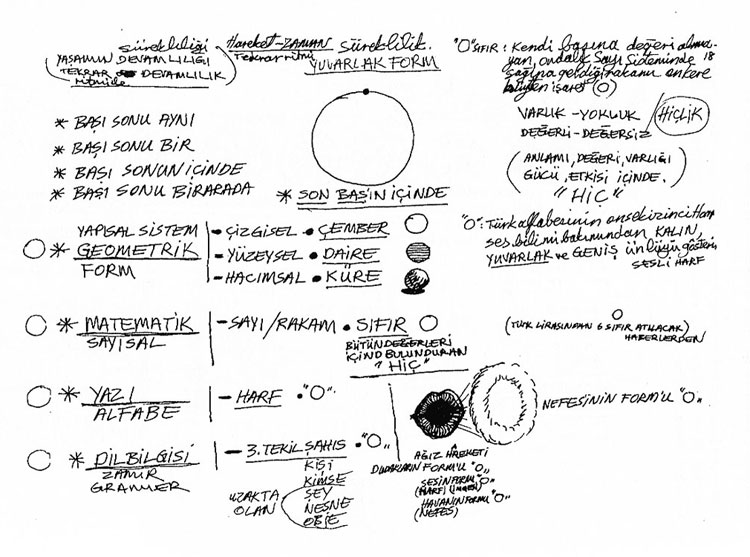 SÜREKLİLİĞİ
YAŞAMIN DEVAMLILIĞI
TEKRAR DEVAMLILIK
RİTMİDE
Hareket-ZAMAN
Tekrar ritmi
SÜREKLİLİK.
YUVARLAK FORM
"O" SIFIR : Kendi başına değeri olma-
yan, ondalık Sayı Sisteminde
18
sağına geldiği rakamı on kere
büyüten işaret (O)
VARLIK - YOKLUK
DEĞERLİ - DEĞERSİZ / HİÇLİK
(ANLAMI, DEĞERİ, VARLIĞI
GÜCÜ, ETKİSİ İÇİNDE.)
"HİÇ"
* BAŞI SONU AYNI
* BAŞI SONU BİR
* BAŞI SONUN İÇİNDE
* BAŞI SONU BİRARADA
* SON BAŞIN İÇİNDE
"O": Türk alfabesinin onsekizinci Harfi
ses bilimi bakımından KALIN,
YUVARLAK ve GENİŞ ünlüyü gösteren
SESLİ HARF
YAPISAL SİSTEM
* GEOMETRİK
FORM
- ÇİZGİSEL • ÇEMBER
- YÜZEYSEL • DAİRE
- HACIMSAL • KÜRE
* MATEMATİK
SAYISAL
- SAYI/RAKAM • SIFIR O
BÜTÜN DEĞERLERİ
İÇİND BULUNDURAN
"HİÇ"
O
(TÜRK LİRASINDAN 6 SIFIR ATILACAK)
HABERLERDEN
* YAZI
ALFABE
- HARF • "O".
NEFESİNİN FORM'U "O"
* DİLBİLGİSİ
ZAMİR
GRAMMER
- 3. TEKİL ŞAHIS • "O"
KİŞİ
KİMSE
UZAKTA
OLAN
ŞEY
NESNE
OBJE
AĞIZ HAREKETİ
DUDAKLARIN FORM'U "O"
SESİN FORMU "O"
(HARF) (İMGEN)
HAVANIN FORMU "O"
(NEFES)